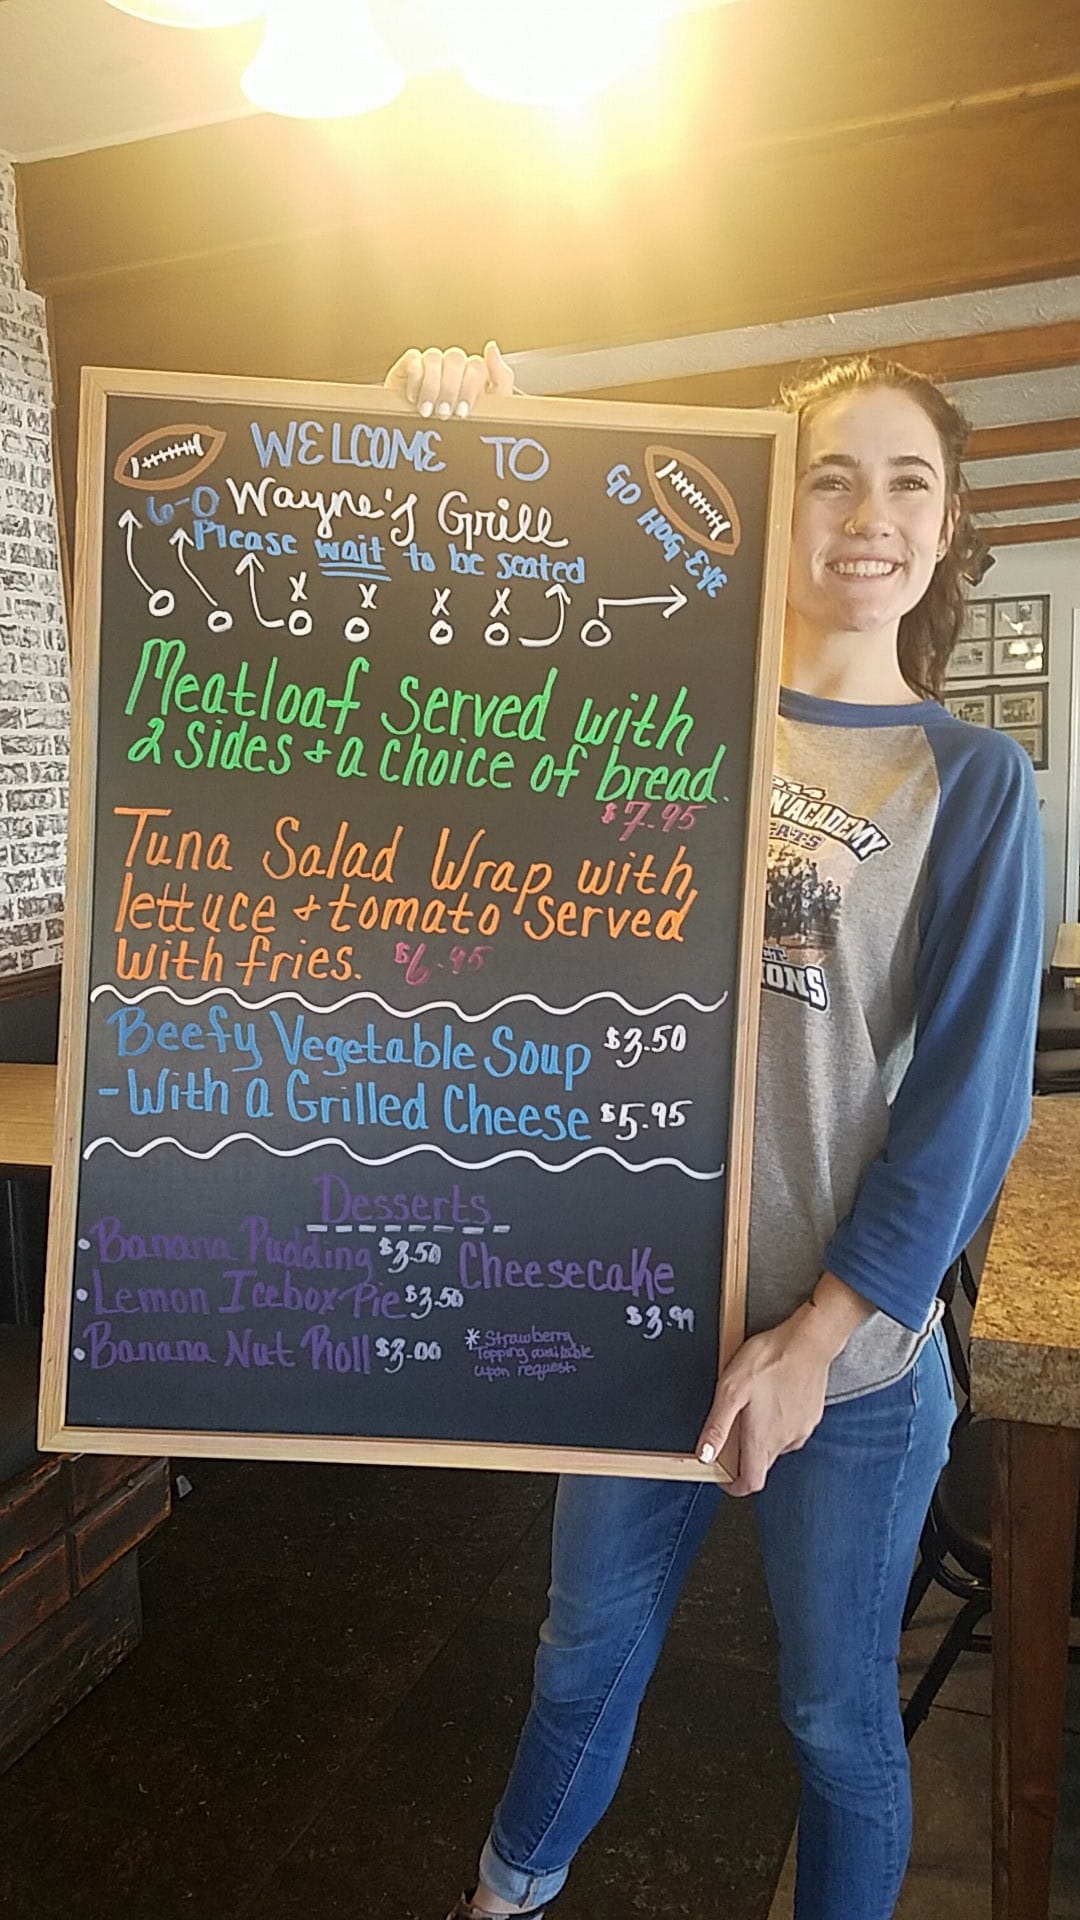 WELCOME TO
6-0 Wayne's Grill
Please wait to be seated
GO HOG-EYE
X X X X
O O O O O O O
Meatloaf served with
2 sides + a choice of bread.
$7.95
Tuna Salad Wrap with
lettuce + tomato served
with fries. $6.95
Beefy Vegetable Soup $3.50
-With a Grilled Cheese $5.95
Desserts
• Banana Pudding $3.50
• Lemon Icebox Pie $3.50
• Banana Nut Roll $3.00
Cheesecake
$3.99
* Strawberry
Topping available
upon request
ACADEMY